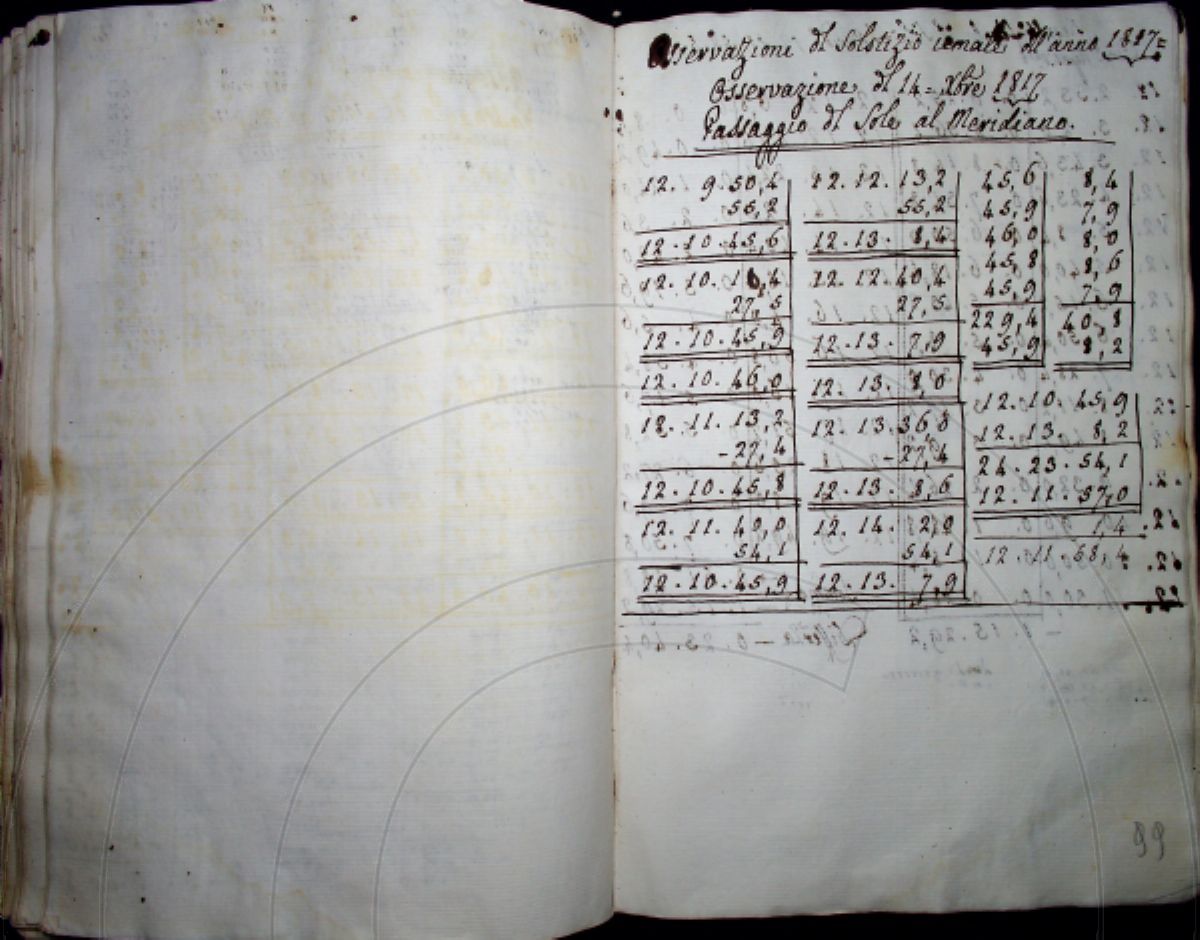 Osservazioni dl Solstizio iemale dll'anno 1817=
Osservazione dl 14= Xbre 1817
Passaggio dl Sole al Meridiano.
12. 9.50,4
55,2
12.10.45,6
12.10.18,4
27,5
12.10.45,9
12.10.46,0
12.11.13,2
-27,4
12.10.45,8
12.11.40,0
54,1
12.10.45,9
12.12.13,2
55,2
12.13. 8,4
12.12.40,4
27,5
12.13. 7,9
12.13. 8,0
12.13.36,0
-27,4
12.13. 8,6
12.14. 2,0
54,1
12.13. 7,9
45,6
45,9
46,0
45,8
45,9
229,4
45,9
8,4
7,9
8,0
8,6
7,9
40,8
8,2
12.10.45,9
12.13. 8,2
24.23.54,1
12.11.57,0
1,4
12.11.58,4
99